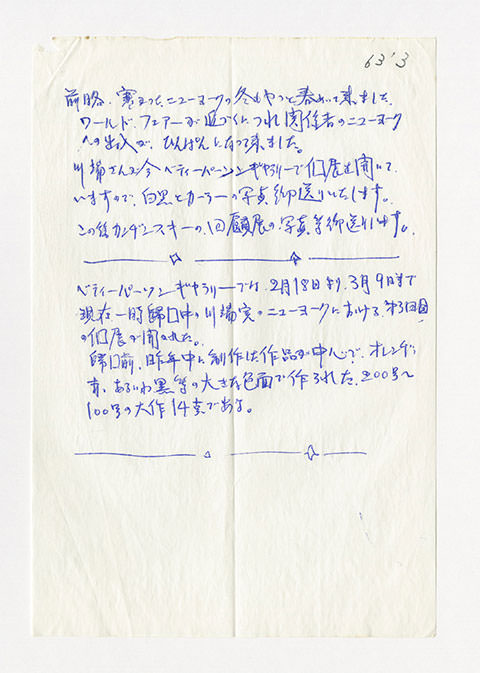 63'3
前略、寒かったニューヨークの冬もやっと春めいて来ました。
ワールド、フェアーが近づくにつれ関係者のニューヨーク
への出入が、ひんぱんになって来ました。
川端さんが今ベティーパーソンギャラリーで個展を開いて
いますので、白黒とカラーの写真御送りいたします。
この後カンデンスキーの回顧展の写真等御送りします。
ベティーパーソンギャラリーでは、2月18日より、3月9日まで
現在一時帰日中の川端実のニューヨークにおける第3回目
の個展が開かれた。
帰日前、昨年中に制作した作品が中心で、オレンヂ、
青、あるいわ黒等の大きな色面で作られた、200号〜
100号の大作14点である。